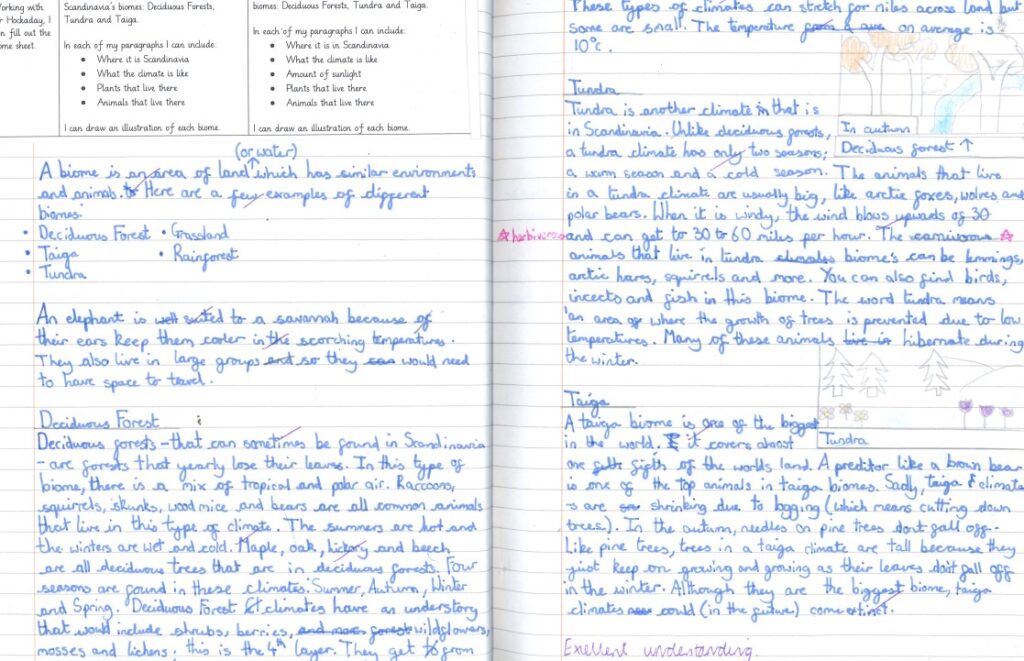 Working with
Hockaday, I
fill out the
sheet.
Scandinavia's biomes: Deciduous Forests,
Tundra and Taiga.
In each of my paragraphs I can include:
• Where it is Scandinavia
• What the climate is like
• Plants that live there
• Animals that live there
I can draw an illustration of each biome.
biomes: Deciduous Forests, Tundra and Taiga.
In each of my paragraphs I can include:
• Where it is in Scandinavia
• What the climate is like
• Amount of sunlight
• Plants that live there
• Animals that live there
I can draw an illustration of each biome.
(or water)
A biome is an area of land which has similar environments
and animals. Here are a few examples of different
biomes:
• Deciduous Forest • Grassland
• Taiga • Rainforest
• Tundra
An elephant is well suited to a savannah because of
their ears keep them cooler in the scorching temperatures.
They also live in large groups and so they can would need
to have space to travel.
Deciduous Forest
Deciduous forests - that can sometimes be found in Scandinavia
- are forests that yearly lose their leaves. In this type of
biome, there is a mix of tropical and polar air. Raccoons,
squirrels, skunks, wood mice and bears are all common animals
that live in this type of climate. The summers are hot and
the winters are wet and cold. Maple, oak, hickory and beech
are all deciduous trees that are in deciduous forests. Four
seasons are found in these climates: Summer, Autumn, Winter
and Spring. Deciduous Forest climates have an understory
that would include shrubs, berries, and more forest wildflowers,
mosses and lichens; this is the 4th layer. They get to from
These types of climates can stretch for miles across land but
some are small. The temperature on average is
10°c.
In autumn
Deciduous forest ↑
Tundra
Tundra is another climate in that is
in Scandinavia. Unlike deciduous forests,
a tundra climate has only two seasons:
a warm season and a cold season. The animals that live
in a tundra climate are usually big, like arctic foxes, wolves and
polar bears. When it is windy, the wind blows upwards of 30
and can get to 30 to 60 miles per hour. The carnivorous ☆
☆ herbivorous
animals that live in tundra climates biome's can be lemmings,
arctic hares, squirrels and more. You can also find birds,
incects and fish in this biome. The word tundra means
'an area of where the growth of trees is prevented due to low
temperatures. Many of these animals live in hibernate during
the winter.
Tundra
Taiga
A taiga biome is one of the biggest
in the world. It covers almost
one fifth of the worlds land. A preditor like a brown bear
is one of the top animals in taiga biomes. Sadly, taiga climate
s are shrinking due to logging (which means cutting down
trees). In the autumn, needles on pine trees dont fall off.
Like pine trees, trees in a taiga climate are tall because they
just keep on growing and growing as their leaves don't fall off
in the winter. Although they are the biggest biome, taiga
climates could (in the future) come extinct.
Exellent understanding.